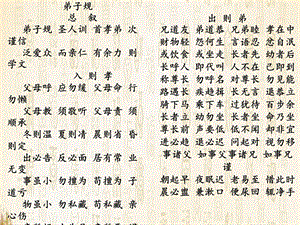 弟子规
总 叙
弟子规 圣人训 首孝弟 次
谨信
泛爱众 而亲仁 有余力 则
学文
入 则 孝
父母呼 应勿缓 父母命 行
勿懒
父母教 须敬听 父母责 须
顺承
冬则温 夏则凊 晨则省 昏
则定
出必告 反必面 居有常 业
无变
事虽小 勿擅为 苟擅为 子
道亏
物虽小 勿私藏 苟私藏 亲
心伤
出 则 弟
兄道友 弟道恭 兄弟睦 孝在中
财物轻 怨何生 言语忍 忿自泯
或饮食 或坐走 长者先 幼者后
长呼人 即代叫 人不在 己即到
称尊长 勿呼名 对尊长 勿见能
路遇长 疾趋揖 长无言 退恭立
骑下马 乘下车 过犹待 百步余
长者立 幼勿坐 长者坐 命乃坐
尊长前 声要低 低不闻 却非宜
进必趋 退必迟 问起对 视勿移
事诸父 如事父 事诸兄 如事兄
谨
朝起早 夜眠迟 老易至 惜此时
晨必盥 兼漱口 便溺回 辄净手